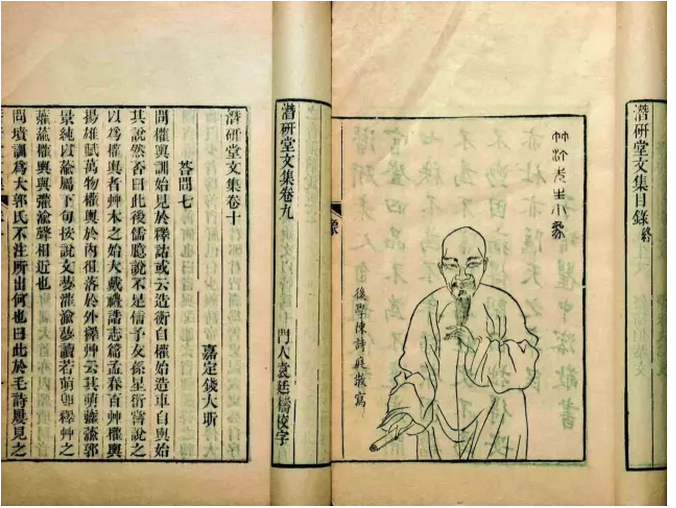 潛研堂文集目錄 終
竹汀先生小象
後學陳詩庭敬寫
象
潛研堂文集卷九
門人袁廷檮校字
潛研堂文集卷十
嘉定錢大昕
答問七
問權輿訓始見於釋詁或云造衡自權始造車自輿始
其說然否曰此後儒臆說不足信予友孫星衍嘗說之
以爲權輿者艸木之始大戴禮誥志篇孟春百艸權輿
揚雄賦萬物權輿於內徂落於外釋艸云其萌虇蕍郭
景純以蕍屬下句按說文夢灌渝夢讀若萌即釋艸之
虇蕍權輿與虇渝聲相近也
問墳訓爲大郭氏不注所出何也曰此於毛詩屢見之